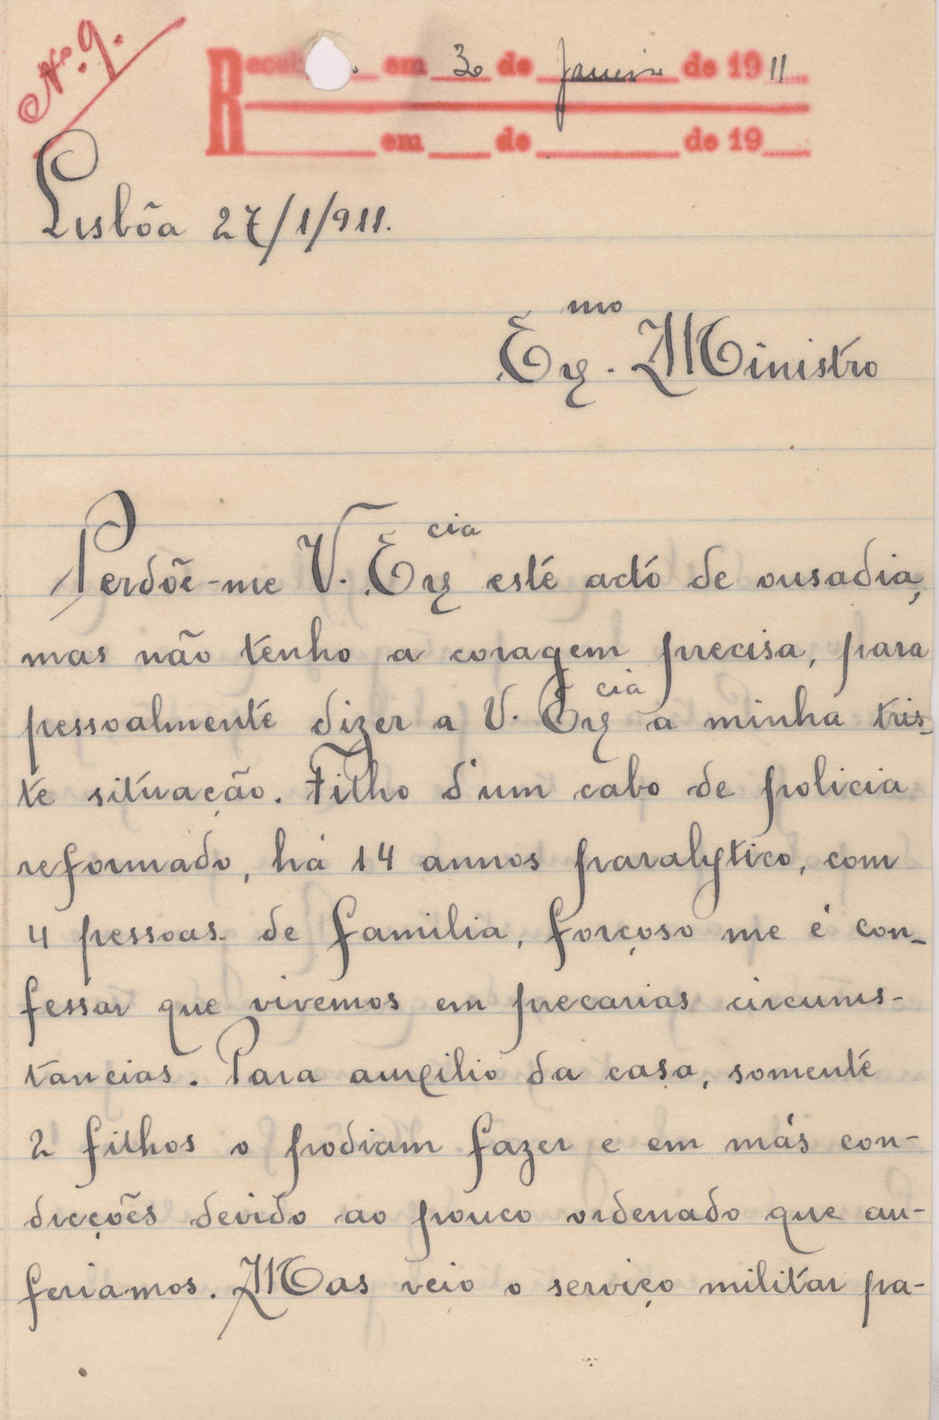 Nº 9.
em 30 de Janeiro de 1911
em de de 19
Lisbôa 27/1/911.
Exmo. Ministro
Perdôe-me V. Excia este acto de ousadia,
mas não tenho a coragem precisa, para
pessoalmente dizer a V. Excia a minha tris-
te situação. Filho d'um cabo de policia
reformado, há 14 annos paralytico, com
4 pessoas de familia, forçoso me é con-
fessar que vivemos em precarias circums-
tancias. Para auxilio da casa, somente
2 filhos o podiam fazer e em más con-
dicções devido ao pouco ordenado que au-
feriamos. Mas veio o serviço militar pa-